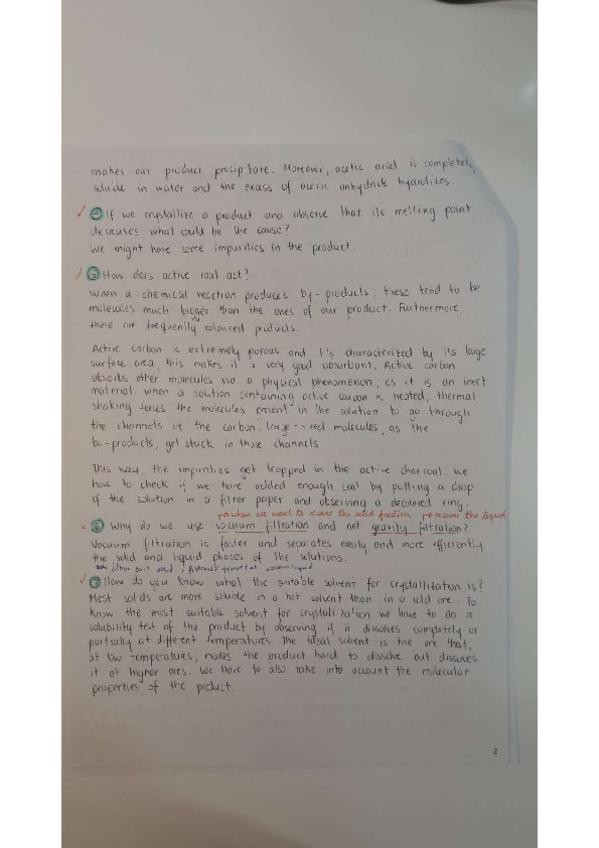 makes our product precipitate. Moreover, acetic acid is completely
soluble in water and the excess of acetic anhydride hydrolizes.
If we crystallize a product and observe that its melting point
decreases, what could be the cause?
We might have some impurities in the product.
⑤ How does active coal act?
When a chemical reaction produces by-products, these tend to be
molecules much bigger than the ones of our product. Furthermore,
these are frequently coloured products.
Active carbon is extremely porous and it's characterized by its large
surface area, this makes it a very good absorbant. Active carbon
absorbs other molecules via a physical phenomenon, as it is an inert
material. When a solution containing active carbon is heated, thermal
shaking forces the molecules present in the solution to go through
the channels of the carbon. Large-sized molecules, as the
by-products, get stuck in those channels.
This way, the impurities get trapped in the active charcoal. We
have to check if we have added enough coal by putting a drop
of the solution in a filter paper and observing a decolored ring.
when we want to recover the solid fraction to recover the liquid
⑥ Why do we use vacuum filtration and not gravity filtration?
Vacuum filtration is faster and separates easily and more efficiently
the solid and liquid phases of the solutions.
⑦ How do you know what the suitable solvent for crystallization is?
Most solids are more soluble in a hot solvent than in a cold one. To
know the most suitable solvent for crystallization we have to do a
solubility test of the product by observing if it dissolves completely or
partially at different temperatures. The ideal solvent is the one that,
at low temperatures, makes the product hard to dissolve but dissolves
it at higher ones. We have to also take into account the molecular
properties of the product.
2